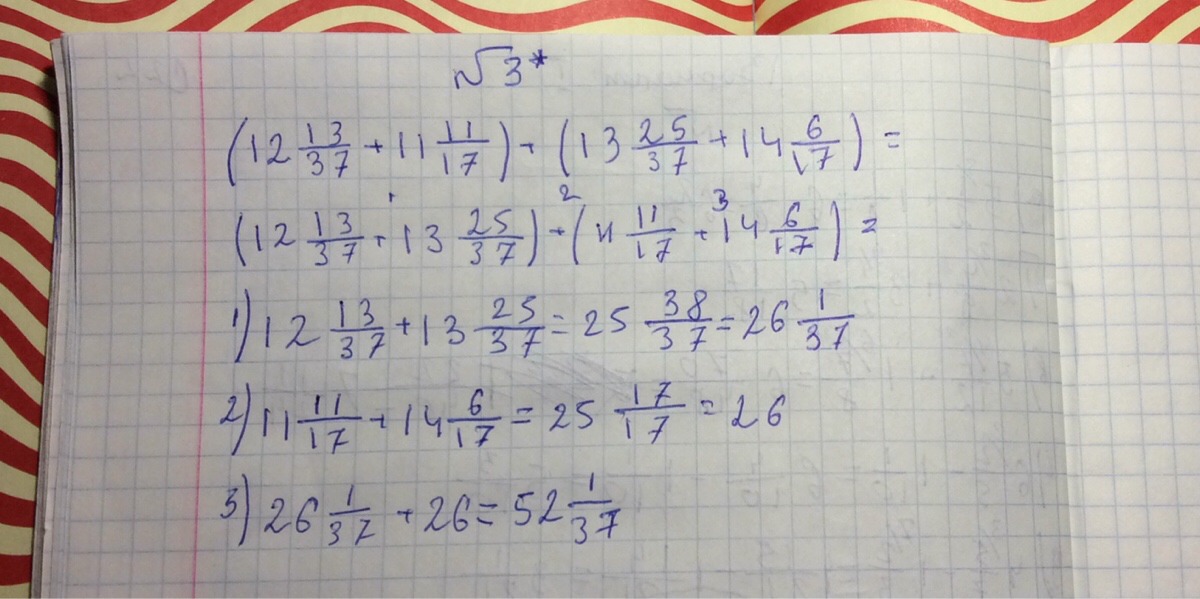 √3*
(12 13/37 + 11 11/17) + (13 25/37 + 14 6/17) =
1 2 3
(12 13/37 + 13 25/37) + (11 11/17 + 14 6/17) =
1) 12 13/37 + 13 25/37 = 25 38/37 = 26 1/37
2) 11 11/17 + 14 6/17 = 25 17/17 = 26
3) 26 1/37 + 26 = 52 1/37